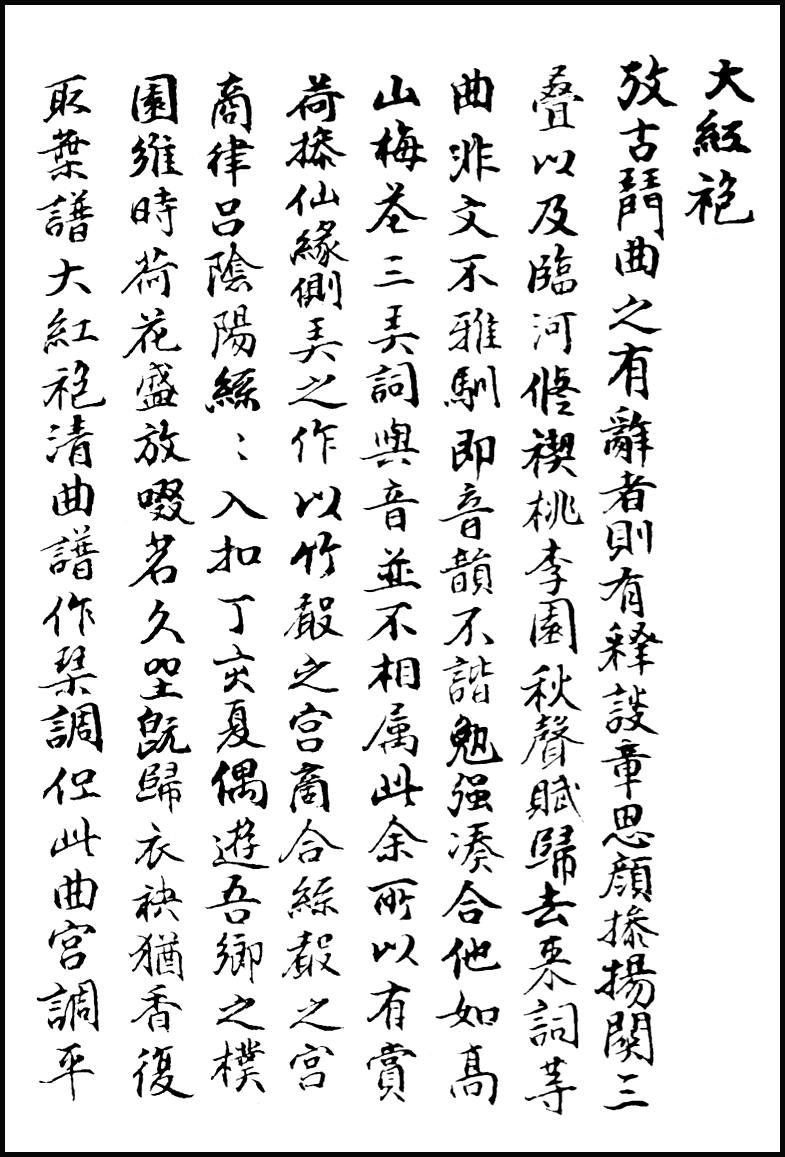 大紅袍
攷古琴曲之有辭者則有釋談章思顏操陽關三
叠以及臨河修禊桃李園秋聲賦歸去來詞等
曲非文不雅馴即音韻不諧勉强湊合他如高
山梅花三弄詞與音並不相属此余所以有賞
荷操仙緣側弄之作以竹聲之宮商合絲聲之宮
商律吕陰陽絲〻入扣丁亥夏偶遊吾鄉之樸
園維時荷花盛放啜茗久坐既歸衣袂猶香復
取葉譜大紅袍清曲譜作琴調但此曲宮調平